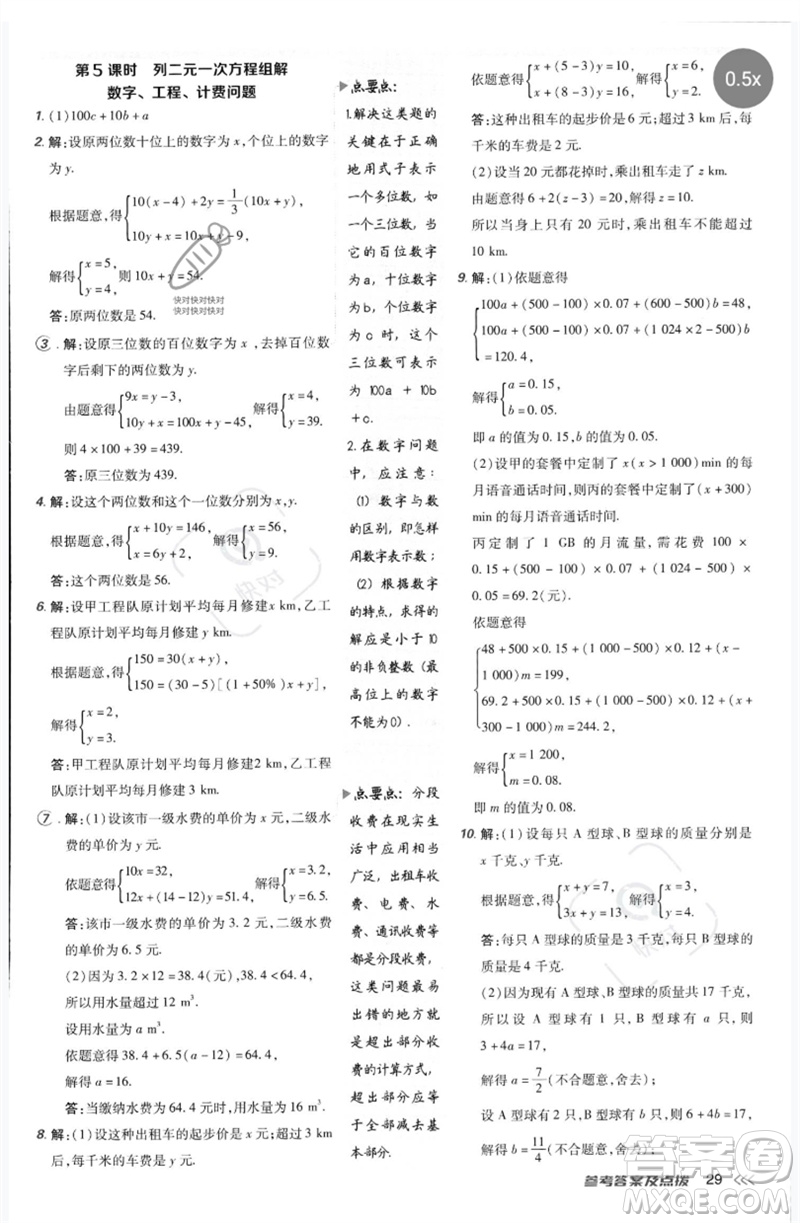 第5课时 列二元一次方程组解
数字、工程、计费问题
1. (1)100c+10b+a
2. 解:设原两位数十位上的数字为 x,个位上的数字
为 y.
根据题意,得{10(x-4)+2y=1/3(10x+y),
10y+x=10x+y-9,
解得{x=5,
y=4, 则 10x+y=54.
快对快对快对
快对快对快对
答:原两位数是 54.
3. 解:设原三位数的百位数字为 x,去掉百位数
字后剩下的两位数为 y.
由题意,得{9x=y-3,
10y=100x-10, 解得{x=4,
y=39.
则 4×100+39=439.
答:原三位数为 439.
4. 解:设这个两位数和这个一位数分别为 x,y.
根据题意,得{x+10y=146,
x=6y+2; 解得{x=56,
答:这个两位数是 56.
快对
6. 解:设甲工程队原计划平均每月修建 x km,乙工
程队原计划平均每月修建 y km.
根据题意,得{150=30(x+y),
150=(30-5)[(1+50%)x+y],
解得{x=2,
y=3.
答:甲工程队原计划平均每月修建2 km,乙工程
队原计划平均每月修建 3 km.
7. 解:(1)设该市一级水费的单价为 x 元,二级水
费的单价为 y 元.
依题意得{10x=32,
12x+(14-12)y=51.4, 解得{x=3.2,
y=6.5.
答:该市一级水费的单价为 3.2 元,二级水费
的单价为 6.5 元.
(2)因为 3.2×12=38.4<64.4,
所以用水量超过 12 m³.
设用水量为 a m³.
依题意得 38.4+6.5(a-12)=64.4,
解得 a=16.
答:当缴纳水费为 64.4 元时,用水量为 16 m³.
8. 解:(1)设这种出租车的起步价是 x 元;超过 3 km
后,每千米的车费是 y 元,
点要点:
1.解决这类题的
关键在于正确
地用式子表示
一个多位数,如
一个三位数,当
它的百位数字
为a,十位数字
为b,个位数字
为c时,这个
三位数可表示
为 100a+10b
+c.
2.在数字问题
中,应注意:
(1)数字与数
的区别,即怎样
用数字表示数;
(2)根据数字
的特点,求得的
解应是小于10
的非负整数(最
高位上的数字
不能为0).
点要点:分段
收费在现实生
活中应用相当
广泛,出租车收
费、电费、水
费、通讯收费等
都是分段收费,
这类问题最易
出错的地方就
是超出部分收
费的计算方式,
超出部分应等
于全部减去基
本部分.
依题意得{x+(5-3)y=10,
0.5x
答:这种出租车的起步价是 6 元;超过 3 km 后,每
千米的车费是 2 元.
(2)设当 20 元都花掉时,乘出租车走了 z km.
由题意得 6+2(z-3)=20,解得 z=10.
所以当身上只有 20 元时,乘出租车不能超过
10 km.
9. 解:(1)依题意得
{100a+(500-100)×0.07+(600-500)b=48,
100a+(500-100)×0.07+(1 024×2-500)b
=120.4,
解得{a=0.15,
b=0.05.
即 a 的值为 0.15,b 的值为 0.05.
(2)设甲的套餐中定制了 x(x>1 000)min 的每
月语音通话时间,则丙的套餐中定制了(x+300)
min 的每月语音通话时间.
丙定制了 1 GB 的月流量,需花费 100×
0.15+(500-100)×0.07+(1 024-500)×
0.05=69.2(元).
依题意得
{48+500×0.15+(1 000-500)×0.12+(x-
1 000)m=199,
69.2+500×0.15+(1 000-500)×0.12+(x+
300-1 000)m=244.2,
解得{x=1 200,
m=0.08.
即 m 的值为 0.08.
10. 解:(1)设每只 A 型球、B 型球的质量分别是
x 千克、y 千克.
根据题意,得{x+y=7,
3x+y=13, 解得{x=3,
y=4.
答:每只 A 型球的质量是 3 千克,每只 B 型球的
质量是 4 千克.
快对
(2)因为现有 A 型球、B 型球的质量共 17 千克,
所以设 A 型球有 1 只,B 型球有 a 只,则
3+4a=17,
解得 a=7/2(不合题意,舍去);
设 A 型球有 2 只,B 型球有 b 只,则 6+4b=17,
解得 b=11/4(不合题意,舍去);
答案圈
参考答案及点拨 29